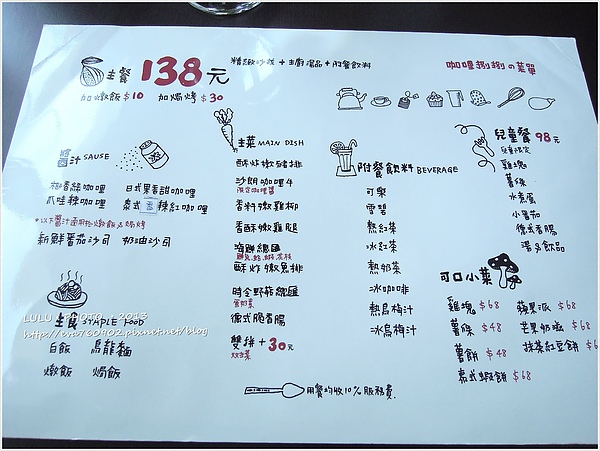 主餐 138元
精緻吵拔 + 主廚湯品 + 附餐飲料
咖哩捌捌の菜單
加燉飯 $10 加焗烤 $30
醬汁 SAUSE
椰香綠咖哩 日式果香甜咖哩
爪哇辣咖哩 泰式 辣紅咖哩
新鮮番茄沙司 奶油沙司
主食 STAPLE FOOD
白飯 烏龍麵
燉飯 焗飯
主菜 MAIN DISH
酥炸嫩豬排
沙朗咖哩牛
限定咖哩醬
香料嫩雞柳
香酥嫩雞腿
海鮮總匯
酥炸嫩魚排
時令野菇總匯
德式脆香腸
雙拼 + 30元
附餐飲料 BEVERAGE
可樂
雪碧
熱紅茶
冰紅茶
熱奶茶
冰咖啡
熱烏梅汁
冰烏梅汁
兒童餐 98元
兒童限定
雞塊
薯條
水煮蛋
小番茄
德式香腸
湯及飲品
可口小菜
雞塊 $68 蘋果派 $68
薯條 $48 芒果奶酪 $68
薯餅 $48 抹茶紅豆餅 $6
泰式蝦餅 $68
用餐均收10%服務費.
LULU PHOTO 2013
http://eva760902.pixnet.net/blog